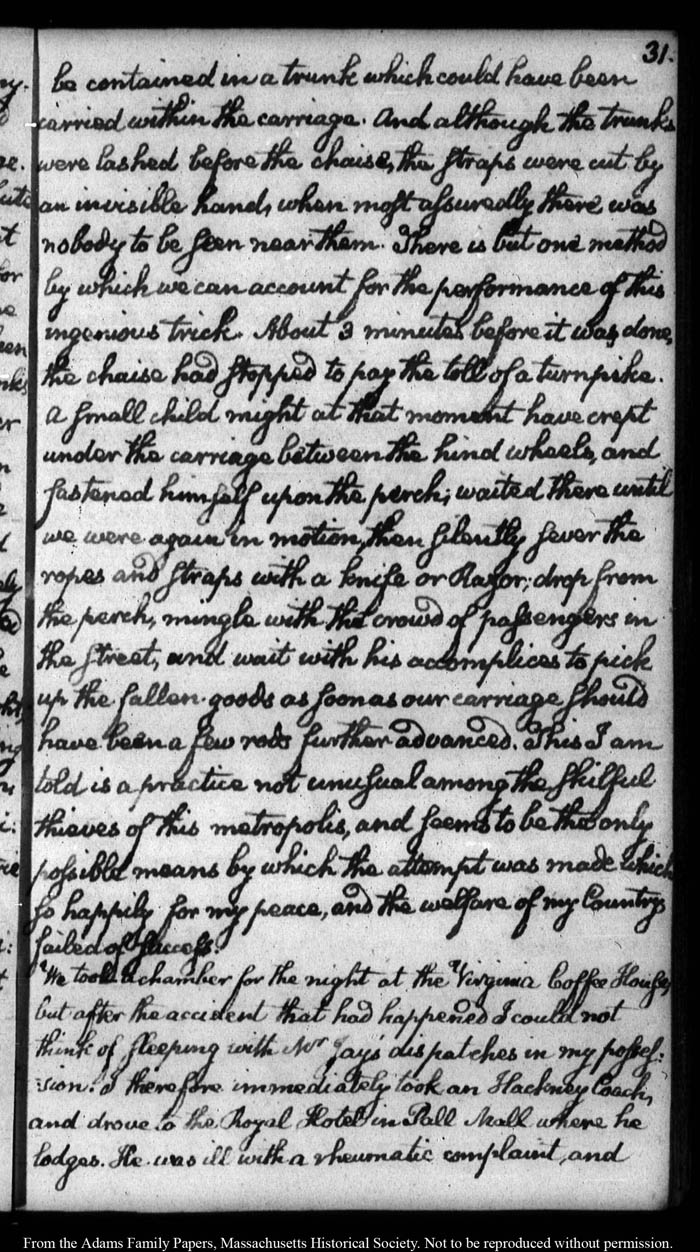 31.
be contained in a trunk which could have been
carried within the carriage. And although the trunks
were lashed before the chaise, the straps were cut by
an invisible hand, when most assuredly there was
nobody to be seen near them. There is but one method
by which we can account for the performance of this
ingenious trick. About 3 minutes before it was done,
the chaise had stopped to pay the toll of a turnpike.
A small child might at that moment have crept
under the carriage between the hind wheels, and
fastened himself upon the perch; waited there until
we were again in motion, then silently sever the
ropes and straps with a knife or Razor; drop from
the perch, mingle with the crowd of passengers in
the street, and wait with his accomplices to pick
up the fallen goods as soon as our carriage should
have been a few rods further advanced. This I am
told is a practice not unusual among the skilful
thieves of this metropolis, and seems to be the only
possible means by which the attempt was made which
so happily for my peace, and the welfare of my Country
failed of success.
We took a chamber for the night at the Virginia Coffee House,
but after the accident that had happened I could not
think of sleeping with Mr Jay's dispatches in my posses:
:sion. I therefore immediately took an Hackney Coach,
and drove to the Royal Hotel in Pall Mall where he
lodges. He was ill with a rheumatic complaint, and
From the Adams Family Papers, Massachusetts Historical Society. Not to be reproduced without permission.